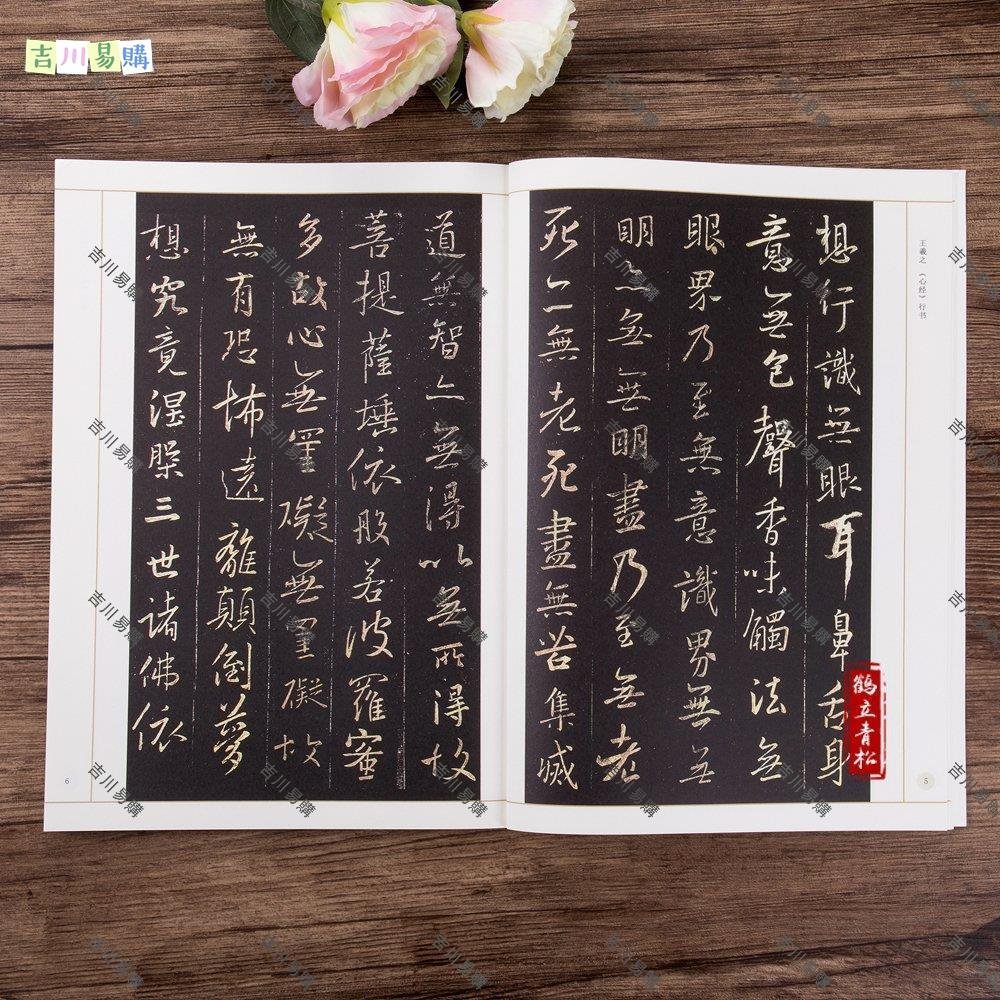 吉川易購
王羲之《心经》行书
想行識無眼耳鼻舌身
意無色聲香味觸法無
眼界乃至無意識界無無
明亦無無明盡乃至無老
死亦無老死盡無苦集滅
道無智亦無得以無所得故
菩提薩埵依般若波羅蜜
多故心無罣礙無罣礙故
無有恐怖遠離顛倒夢
想究竟涅槃三世諸佛依
鶴立青松
5
6